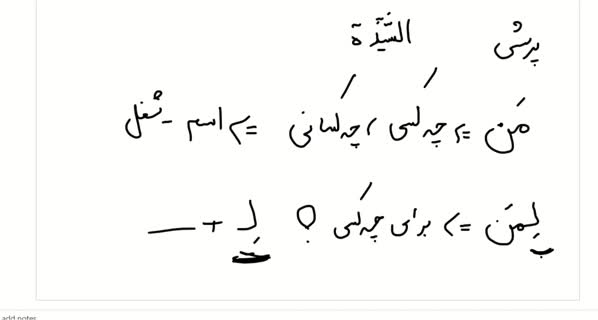 پرسشی السَّیِّدَة
مَن => چه کسی، چه کسانی => اسم - شغل
لِمَن => برای چه کسی؟ لِـ + ___
add notes